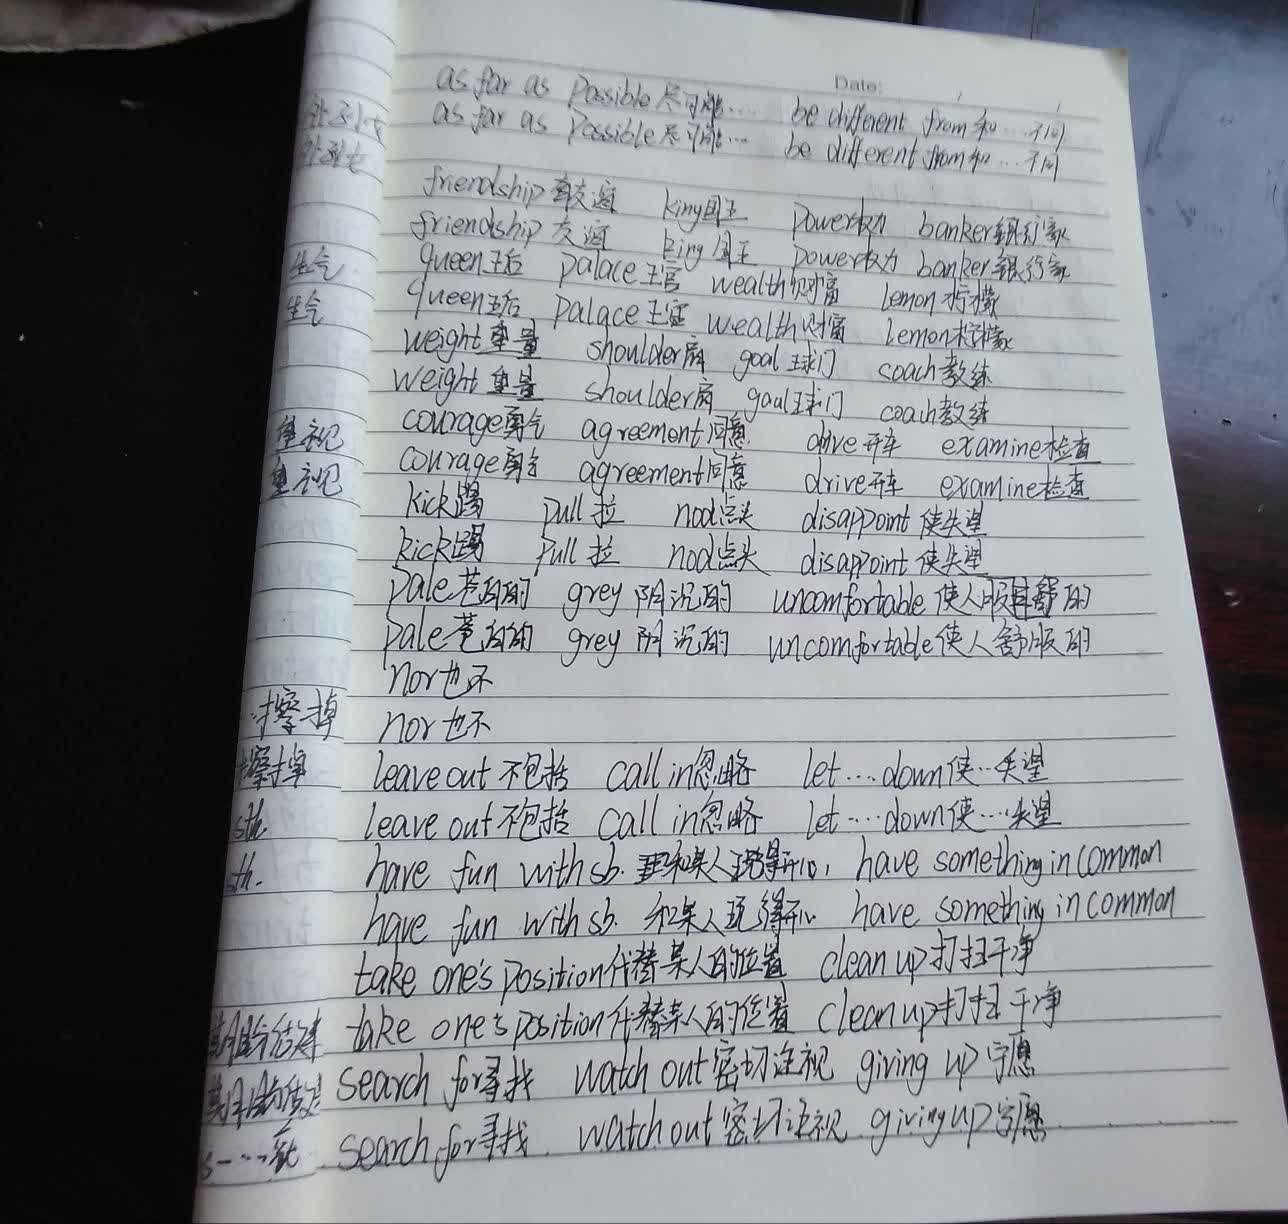 Date:
as far as possible尽可能…… be different from 和…不同
as far as possible尽可能… be different from和…不同
friendship 友谊 king国王 power权力 banker银行家
friendship 友谊 king国王 power权力 banker银行家
queen王后 palace王宫 wealth财富 lemon柠檬
queen王后 palace王宫 wealth财富 lemon柠檬
weight重量 shoulder肩 goal球门 coach教练
weight重量 shoulder肩 goal球门 coach教练
courage勇气 agreement同意 drive开车 examine检查
courage勇气 agreement同意 drive开车 examine检查
kick踢 pull拉 nod点头 disappoint使失望
kick踢 pull拉 nod点头 disappoint使失望
pale苍白的 grey阴沉的 uncomfortable使人服舒的
pale苍白的 grey阴沉的 uncomfortable使人舒服的
nor也不
nor也不
leave out不包括 call in忽略 let…down使…失望
leave out不包括 call in忽略 let…down使…失望
have fun with sb. 和某人玩得开心, have something in common
have fun with sb. 和某人玩得开心 have something in common
take one's position代替某人的位置 clean up打扫干净
take one's position代替某人的位置 clean up打扫干净
search for寻找 watch out密切注视 giving up宁愿
search for寻找 watch out密切注视 giving up宁愿
生气
生气
重视
重视
…擦掉
擦掉
sth.
sth.